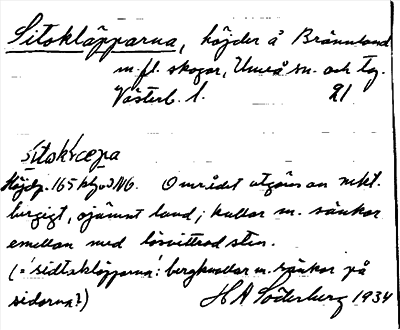 Sitokläpparna, höjder å Brännland
m.fl. skogar, Umeå sn. och tg.
Västerb. l. 21
sitokɫcepa
Höjdp. 165 Området utgöres av mkt.
bergigt, ojämnt land; kullar m. sänkor
emellan med lösvittrad sten.
(= 'sidtokläpparna': bergkullar m. sänkor på
sidorna?) H A Söderberg 1934